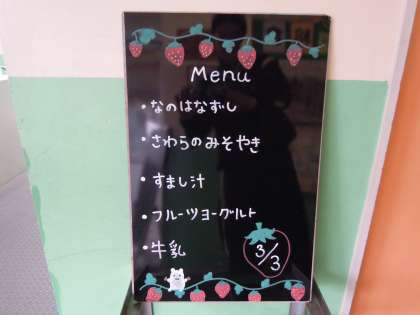 Menu
・なのはなずし
・さわらのみそやき
・すまし汁
・フルーツヨーグルト
・牛乳
3/3